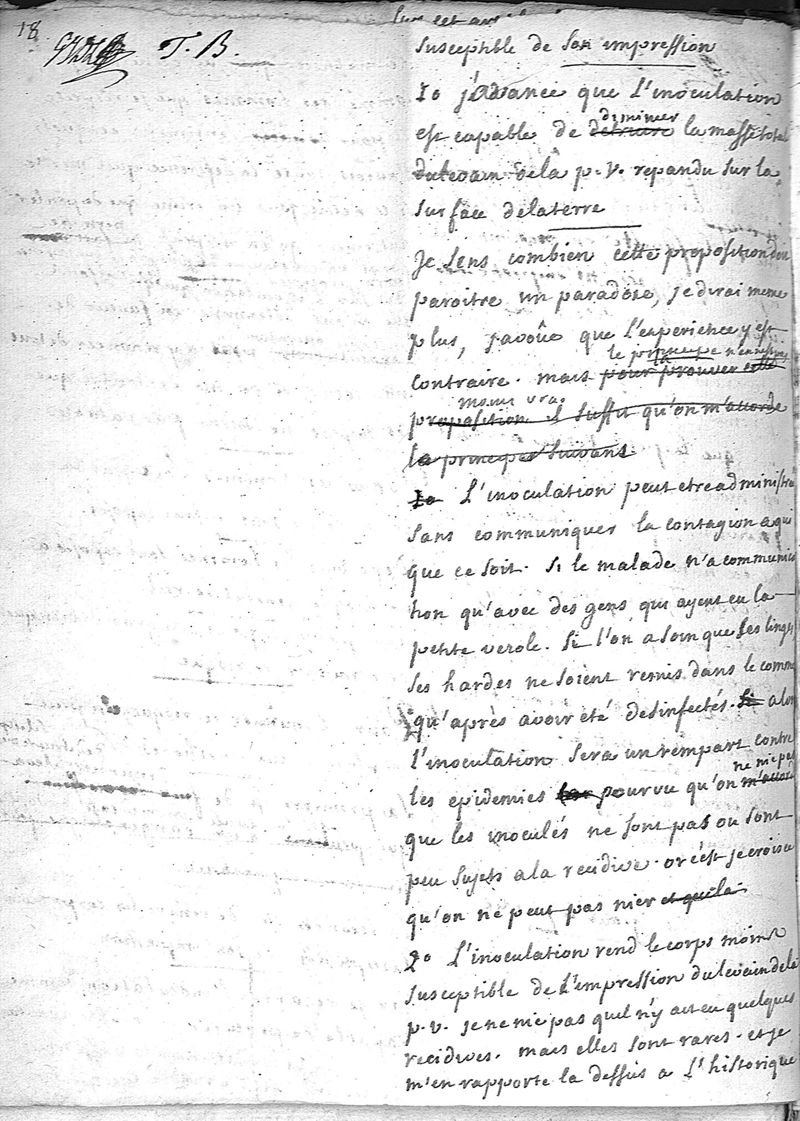 18
T. B.
susceptible de son impression
1o j'avance que l'inoculation
est capable de detruire diminuer la masse total
du levain dela p. v. repandu sur la
surface delaterre
Je sens combien cette proposition
paroitre un paradoxe, je dirai meme
plus, j'avoüe que l'experience y est
contraire. mais pour prouver cette le principe n'en est pas
proposition il suffit qu'on m'accorde moins vrai
le principe suivant
1o L'inoculation peut etre administré
sans communiquer la contagion a qui
que ce soit. si le malade n'a communica
tion qu'avec des gens qui ayent eu la
petite verole. Si l'on a soin que ses linges
ses hardes ne soient remis dans le comme
qu'après avoir été desinfectés. si alors
l'inoculation sera un rempart contre
les epidemies pourvu qu'on m'accorde ne nie pas
que les inoculés ne sont pas ou sont
peu sujets a la recidive. or c'est je crois ce
qu'on ne peut pas nier et que la
2o L'inoculation rend le corps moins
susceptible de l'impression du levain de la
p. v. je ne nie pas quil n'y ait eu quelques
recidives. mais elles sont rares. et je
m'en rapporte la dessus a l'historique